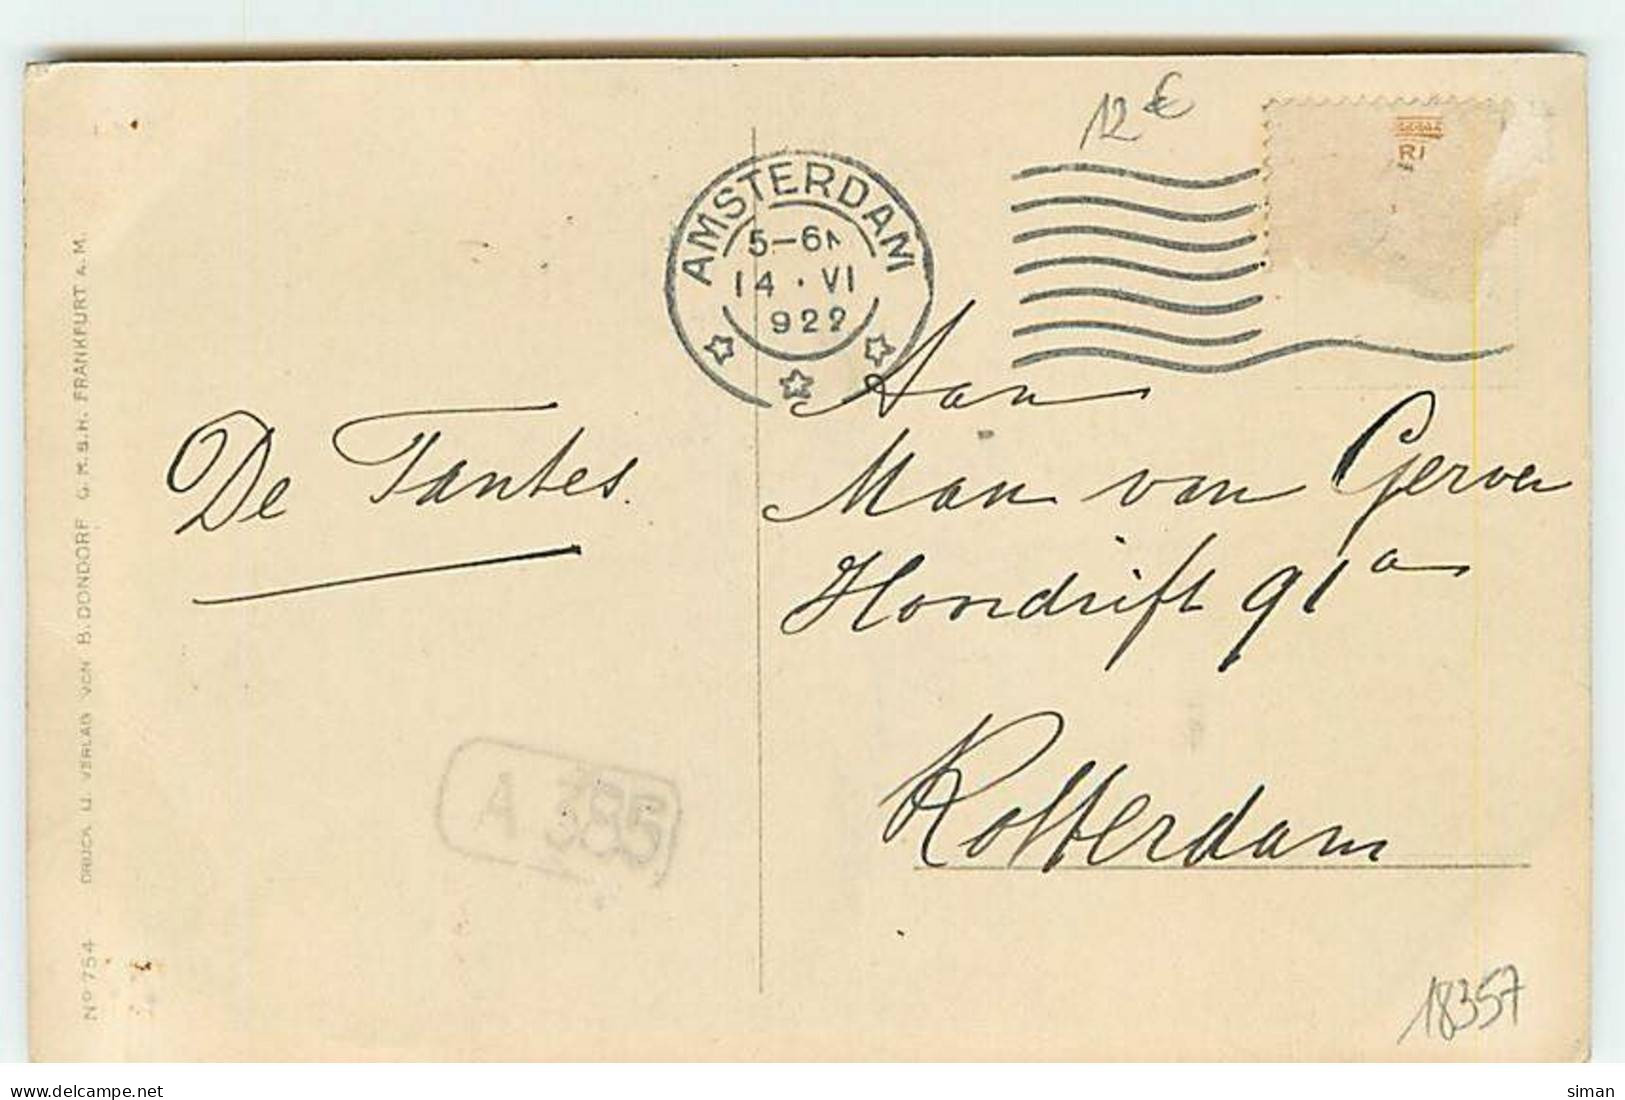 12 €
RI
AMSTERDAM
5-6N
14 · VI
922
De Tantes.
Aan
Man van Gerven
Hondrift 91a
Rotterdam
A 385
No 754 DRUCK U. VERLAG VON B. DONDORF G.M.B.H. FRANKFURT A.M.
18357
siman